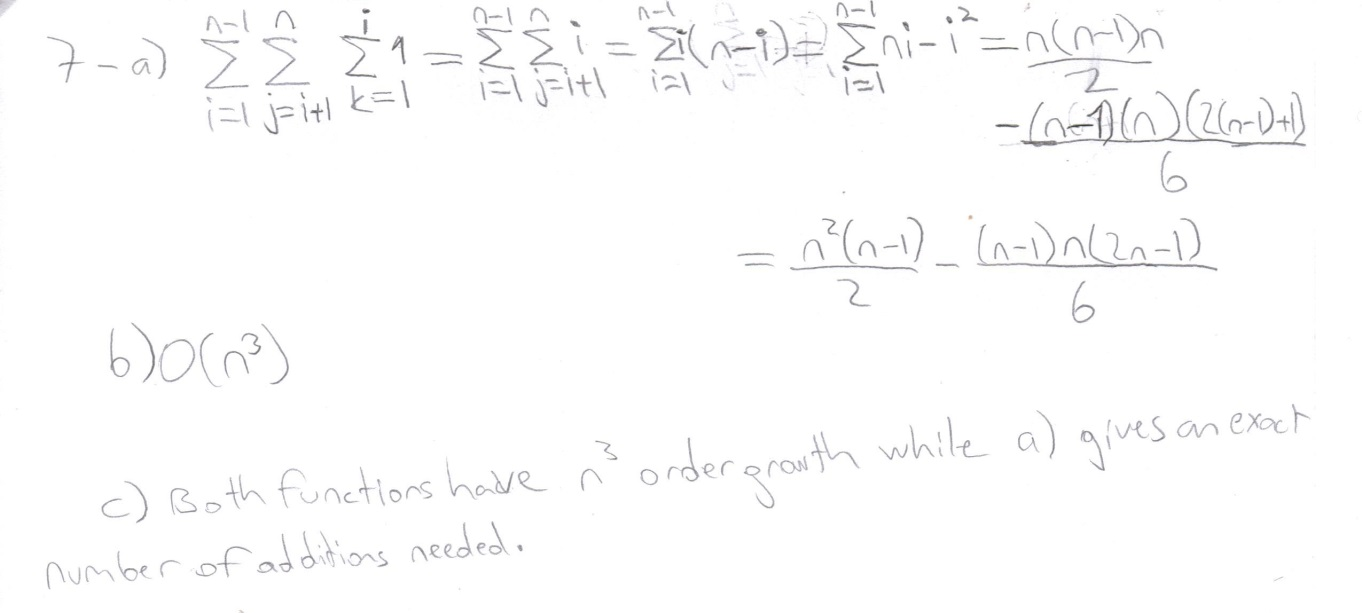 7-a) \sum_{i=1}^{n-1} \sum_{j=i+1}^{n} \sum_{k=1}^{i} 1 = \sum_{i=1}^{n-1} \sum_{j=i+1}^{n} i = \sum_{i=1}^{n-1} i(n-i) = \sum_{i=1}^{n-1} ni-i^2 = \frac{n(n-1)n}{2}
-\frac{(n-1)(n)(2(n-1)+1)}{6}
= \frac{n^2(n-1)}{2} - \frac{(n-1)n(2n-1)}{6}
b) O(n^3)
c) Both functions have n^3 order growth while a) gives an exact
number of additions needed.